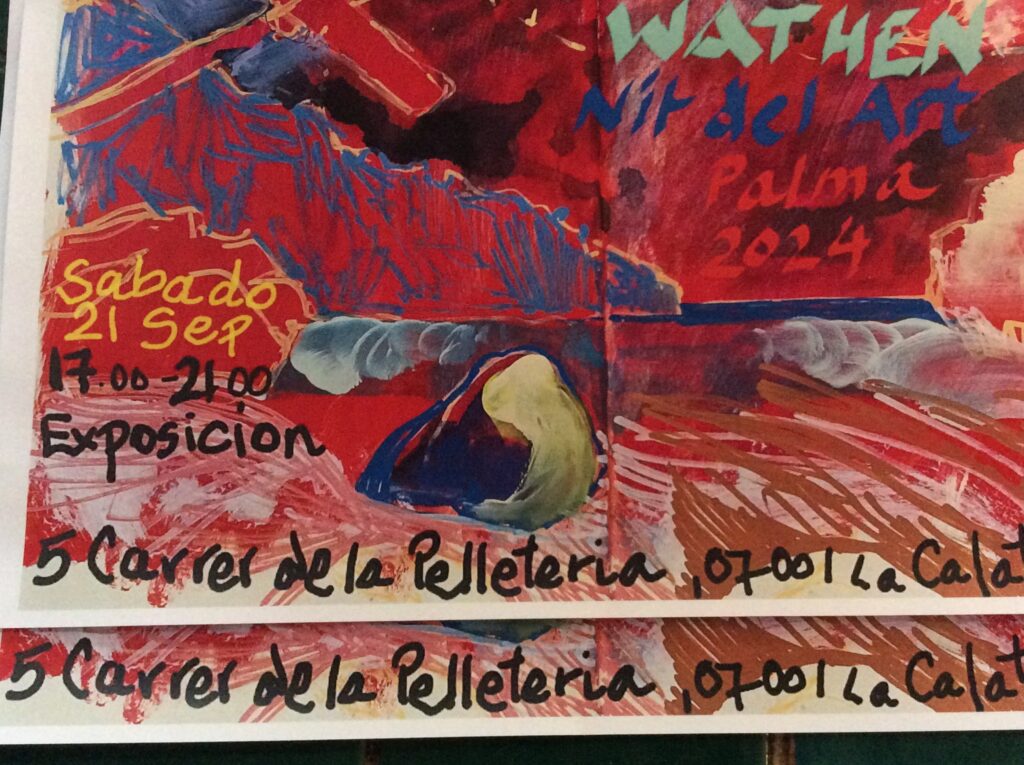 WATHEN
Nit del Art
Palma
2024
Sabado
21 Sep
17.00-21.00
Exposicion
5 Carrer de la Pelleteria, 07001 La Calat
5 Carrer de la Pelleteria, 07001 La Calat